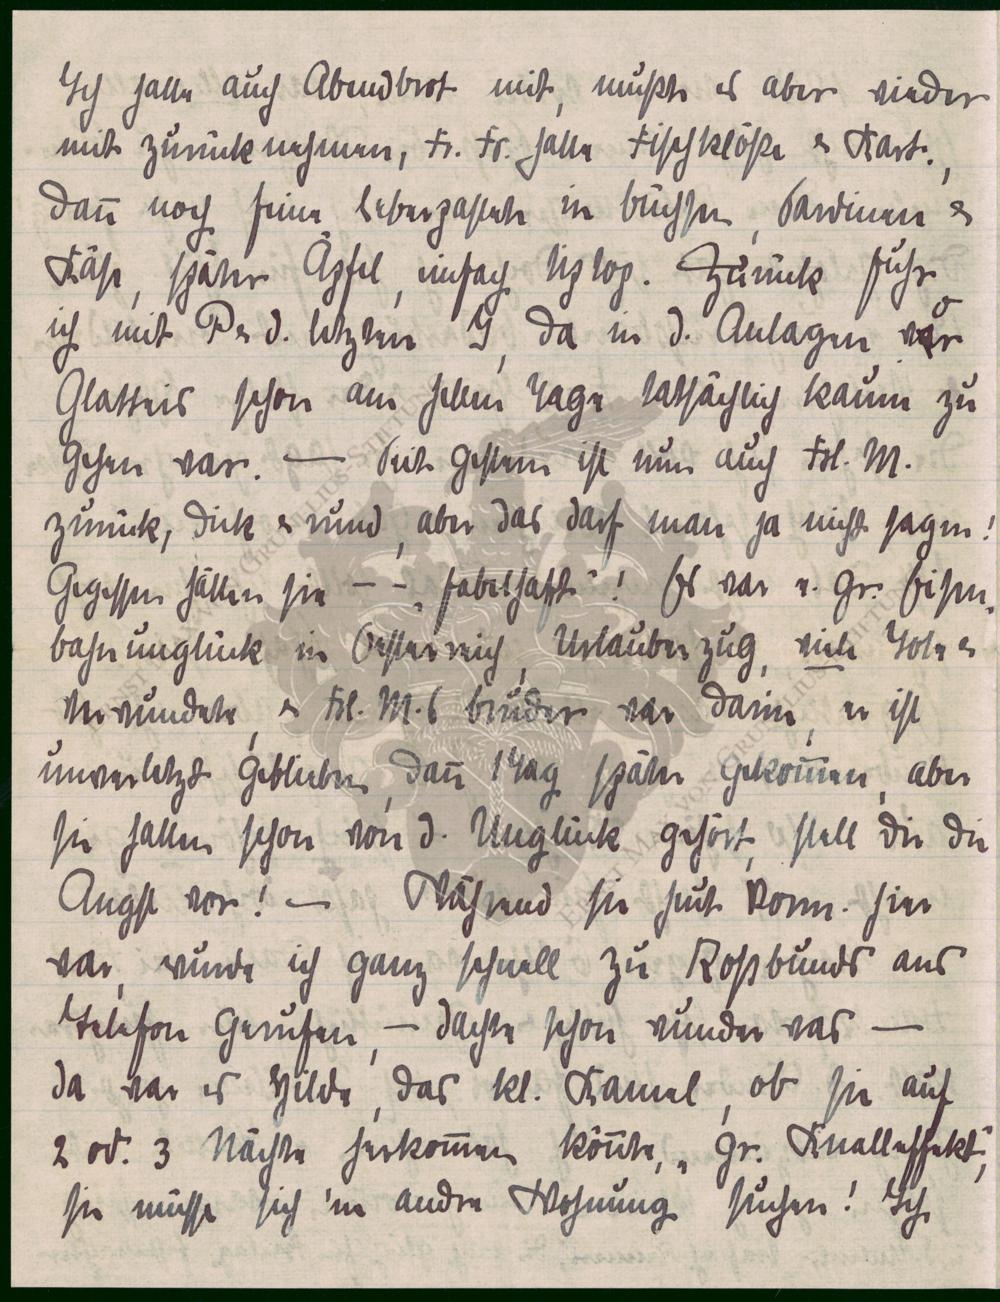 Ich hatte auch Abendbrot mit, mußte es aber wieder
mit zurücknehmen, Fr. Fr. hatte Fischklöße & Kart.,
dañ noch feine Leberpastete in Büchsen, Sardinen &
Käse, später Äpfel, einfach tiptop. Zurück fuhr
ich mit P & d. letzten 9, da in d. Anlagen vor
Glatteis schon am hellen Tage tatsächlich kaum zu
gehen war. — Seit gestern ist nun auch Frl. M.
zurück, dick & rund, aber das darf man ja nicht sagen!
Gegessen hätten sie — – „fabelhaft“! Es war e. gr. Eisen-
bahnunglück in Oesterreich, Urlauberzug, viele Tote &
Verwundete, & Frl. M.s Bruder war darin, er ist
unverletzt geblieben, dañ 1 Tag später gekom̄en, aber
sie hatten schon von d. Unglück gehört, stell dir die
Angst vor! — Während sie heut Vorm. hier
war, wurde ich ganz schnell zu Roßbunds ans
Telefon gerufen, — dachte schon wunder was —
da war es Hilde, das kl. Kamel, ob sie auf
2 od. 3 Nächte herkom̄en kön̄te, „gr. Knalleffekt“,
sie müsse sich 'ne andre Wohnung suchen! Ich